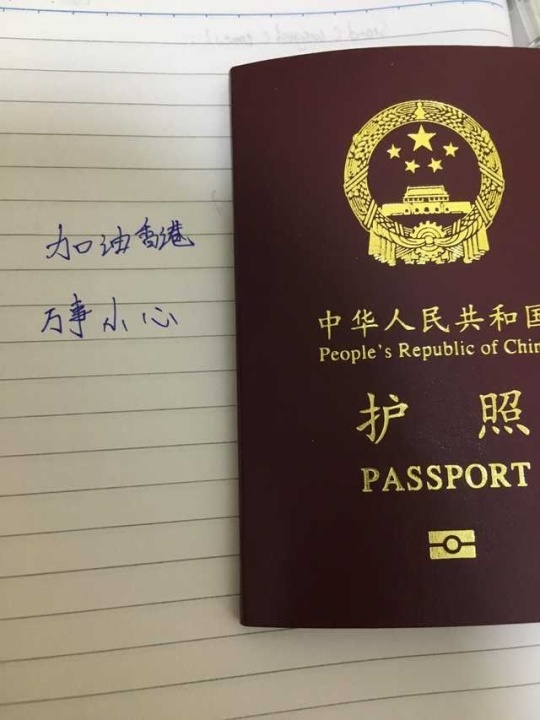 加油香港
万事小心
中华人民共和国
People's Republic of Chin
护照
PASSPORT